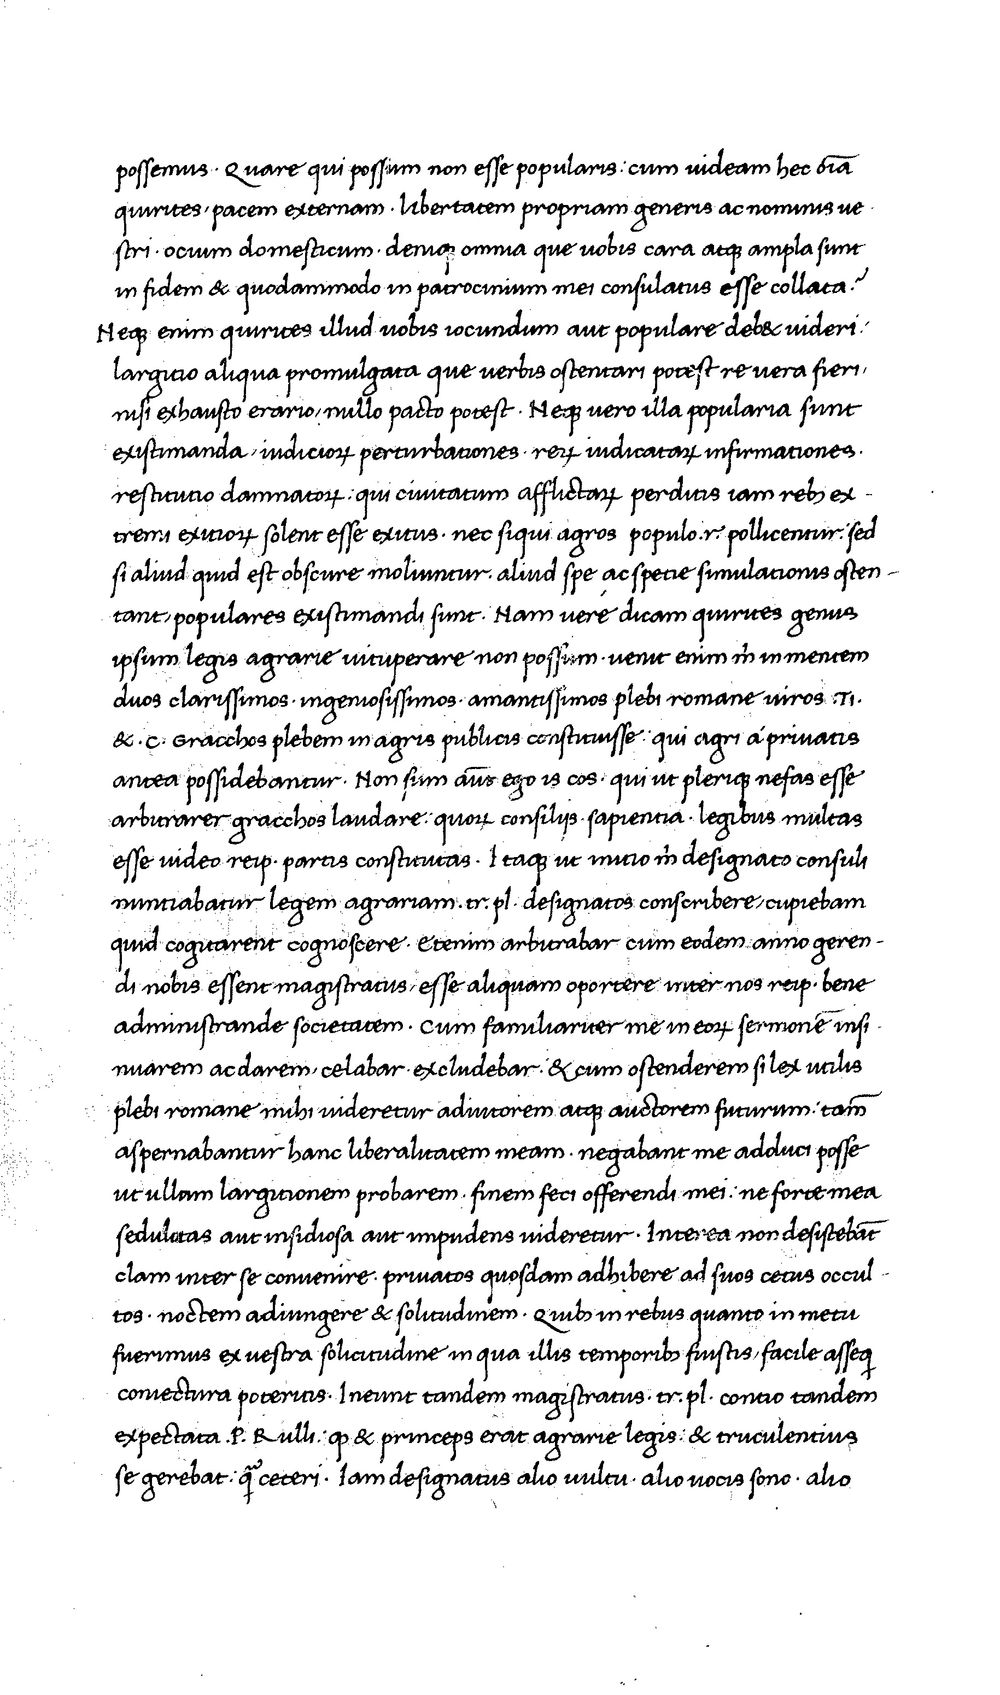 possemus · Quare qui possum non esse popularis : cum uideam hec oı̄a
quirites / pacem externam · libertatem propriam generis ac nominis ue
stri · ocium domesticum · deniqꝫ omnia que uobis cara atqꝫ ampla sunt
in fidem & quodammodo in patrocinium mei consulatus esse collata ?
Neqꝫ enim quirites illud uobis iocundum aut populare deb& uideri :
largitio aliqua promulgata que uerbis ostentari potest re uera fieri /
nisi exhausto erario / nullo pacto potest · Neqꝫ uero illa popularia sunt
existimanda / iudicioꝝ perturbationes · reꝝ iudicataꝝ infirmationes ·
restitutio damnatoꝝ : qui ciuitatum afflictaꝝ perditis iam rebꝫ ex -
tremi exitioꝝ solent esse exitus · nec siqui agros populo .r. pollicentur : sed
si aliud quid est obscure moliuntur · aliud spe ac specie simulationis osten -
tant / populares existimandi sunt · Nam uere dicam quirites genus
ipsum legis agrarie uituperare non possum · uenit enim m̄ in mentem
duos clarissimos · ingeniosissimos · amantissimos plebi romane uiros .Ti.
& · C · Gracchos plebem in agris publicis constituisse : qui agri a priuatis
antea possidebantur · Non sum aūt ego is cos · qui ut pleriqꝫ nefas esse
arbitrarer gracchos laudare : quoꝝ consilijs · sapientia · legibus multas
esse uideo reip · partis constitutas · Itaqꝫ ut initio m̄ designato consuli
nuntiabatur legem agrariam · tr. pl · designatos conscribere / cupiebam
quid cogitarent cognoscere · Etenim arbitrabar cum eodem anno geren -
di nobis essent magistratus / esse aliquam oportere inter nos reip · bene
administrande societatem · Cum familiariter me in eoꝝ sermonē insi -
nuarem ac darem / celabar · excludebar · & cum ostenderem si lex utilis
plebi romane mihi uideretur adiutorem atqꝫ auctorem futurum : tam̄
aspernabantur hanc liberalitatem meam · negabant me adduci posse
ut ullam largitionem probarem · finem feci offerendi mei : ne forte mea
sedulitas aut insidiosa aut impudens uideretur · Interea non desistebāt
clam inter se conuenire · priuatos quosdam adhibere ad suos cetus occul -
tos · noctem adiungere & solitudinem · Quibꝫ in rebus quanto in metu
fuerimus ex uestra solicitudine in qua illis temporibꝫ fuistis / facile asseq̄
coniectura poteritis · Ineunt tandem magistratus · tr. pl · contio tandem
expectata .P. Rulli : ꝙ & princeps erat agrarie legis : & truculentius
se gerebat : q̄ ceteri · Iam designatus alio uultu · alio uocis sono · alio